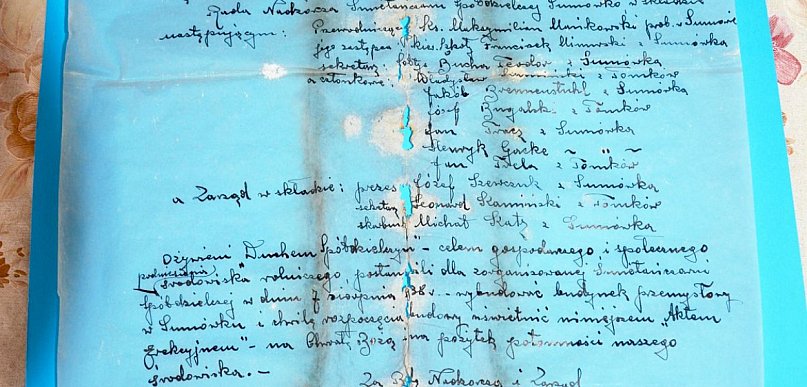 Rada Nadzorcza Śmietczarni Spółdzielczej Sumówko w składzie
następującym: Przewodniczący Ks. Maksymilian Mańkowski prob. w Sumowie
jego zastępca kier. szkoły Franciszek Umiński z Sumówka
sekretarz. Bucha Teodor z Sumówka
a członkowie: Władysław z Tomków
Jakób Brennenstuhl z Sumówka
Józef Bugalski z Tomków
Jan Tracz z Sumówka
Henryk Gacke ~ " ~
Jan Trela z Tomków
a Zarząd w składzie: prezes Józef Szewczuk z Sumówka
sekretarz Leonard Kamiński z Tomków
skarbnik Michał Katz z Sumówka
Ożywieni "Duchem Spółdzielczym" - celem gospodarczego i społecznego
podniesienia
środowiska rolniczego postanowili dla zorganizowanej Śmietańczarni
Spółdzielczej w dniu 7 sierpnia 1938 r. wybudować budynek przemysłowy
w Sumówku i chwilę rozpoczęcia budowy uświetnić niniejszem „Aktem
Erekcyjnem" - na Chwałę Bożą - na pożytek potomności naszego
środowiska. -
Za Radę Nadzorczą i Zarząd